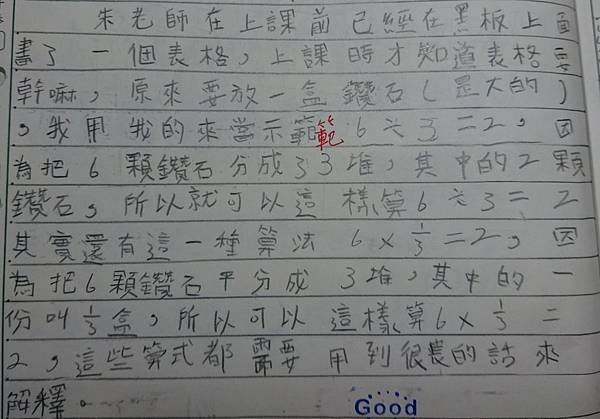 朱老師在上課前已經在黑板上面
畫了一個表格,上課時才知道表格要
幹嘛,原來要放一盒鑽石(是大的)
,我用我的來當示範範6÷3=2,因
為把6顆鑽石分成33堆,其中的2顆
鑽石,所以就可以這樣算6÷3=2
其實還有這一種算法6×1/3=2,因
為把6顆鑽石平分成3堆,其中的一
份叫1/3盒,所以可以這樣算6×1/3=
2,這些算式都需要用到很長的話來
解釋。
Good